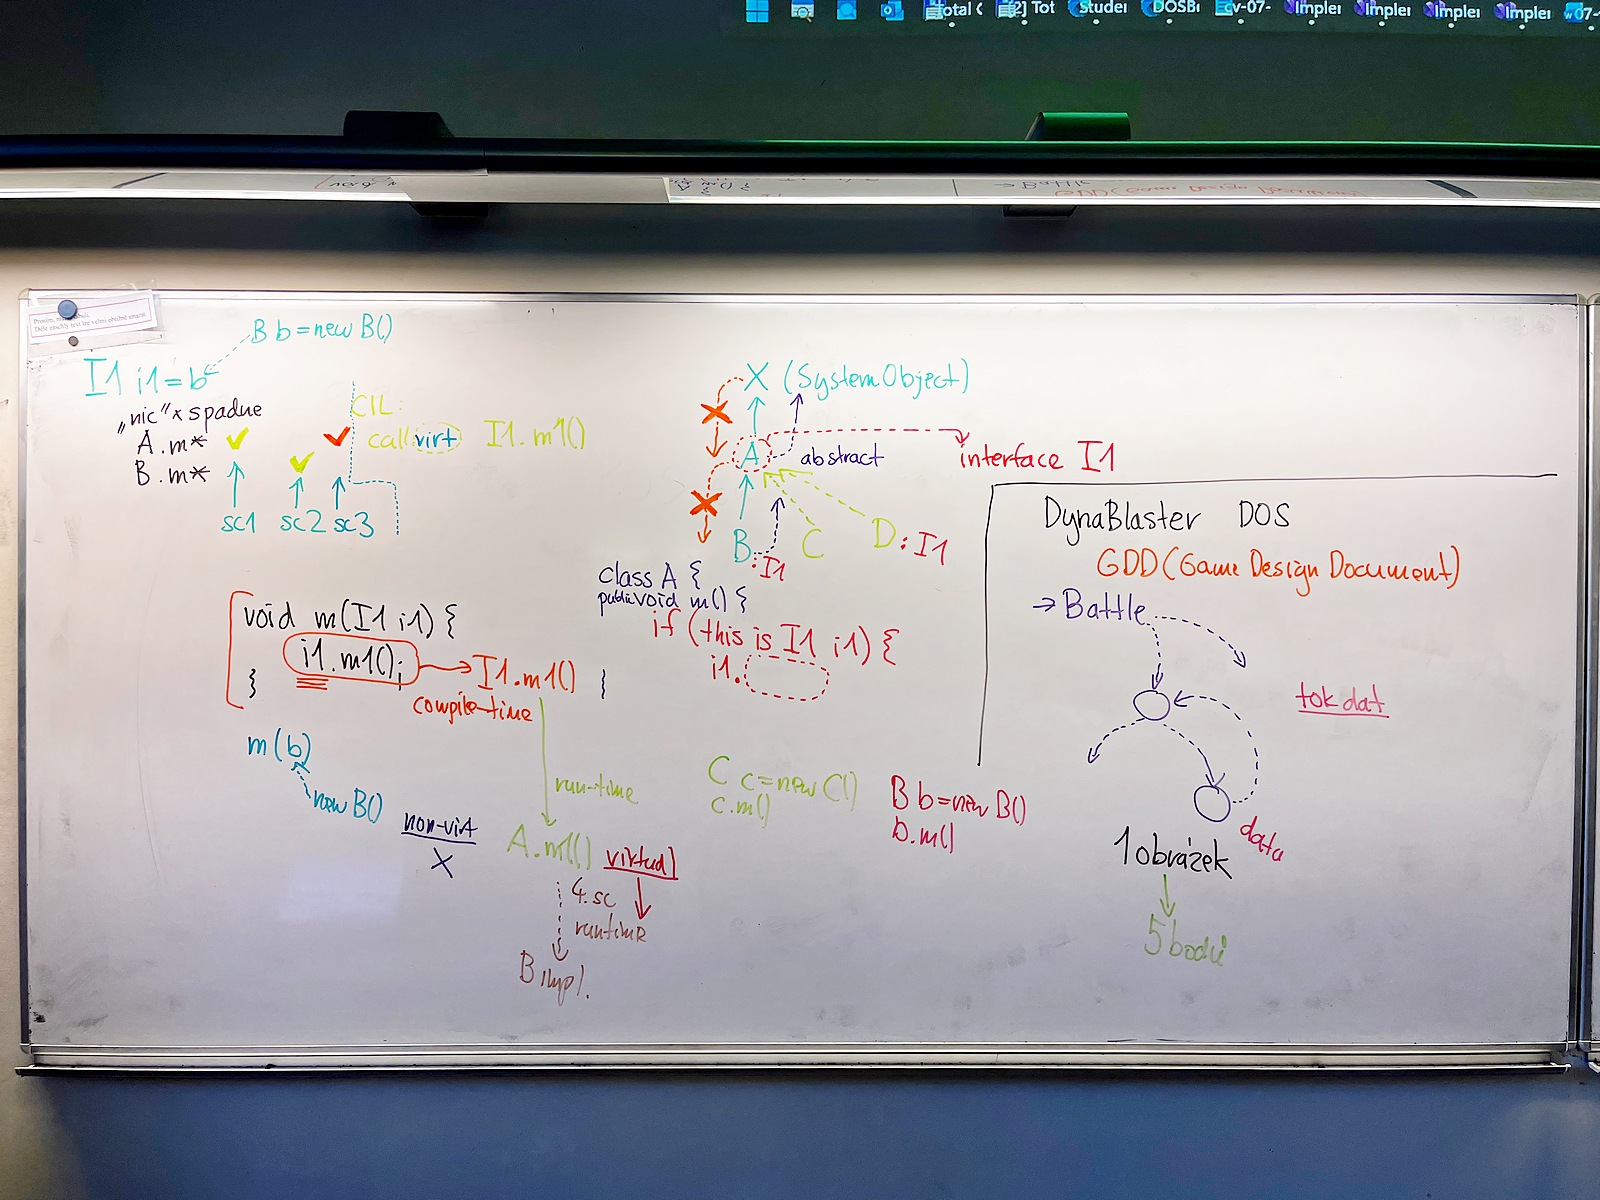 Total C
[2] Tot
Studei
DOSBi
cv-07-
Impler
Impler
Impler
Impler
07-
→ Battle
GDD (Game Design Document)
B b = new B()
I1 i1 = b
„nic“ × spadne
A.m*
B.m*
CIL:
callvirt I1.m1()
sc1 sc2 sc3
X (System Object)
A
abstract
interface I1
B : I1
C
D : I1
class A {
public void m() {
if (this is I1 i1) {
i1.
}
void m(I1 i1) {
i1.m1();
}
I1.m1()
compile-time
m(b)
new B()
run-time
non-virt
X
A.m1()
virtual
4. sc
runtime
B impl.
C c = new C()
c.m()
B b = new B()
b.m()
DynaBlaster DOS
GDD (Game Design Document)
→ Battle
tok dat
data
1 obrázek
5 bodů